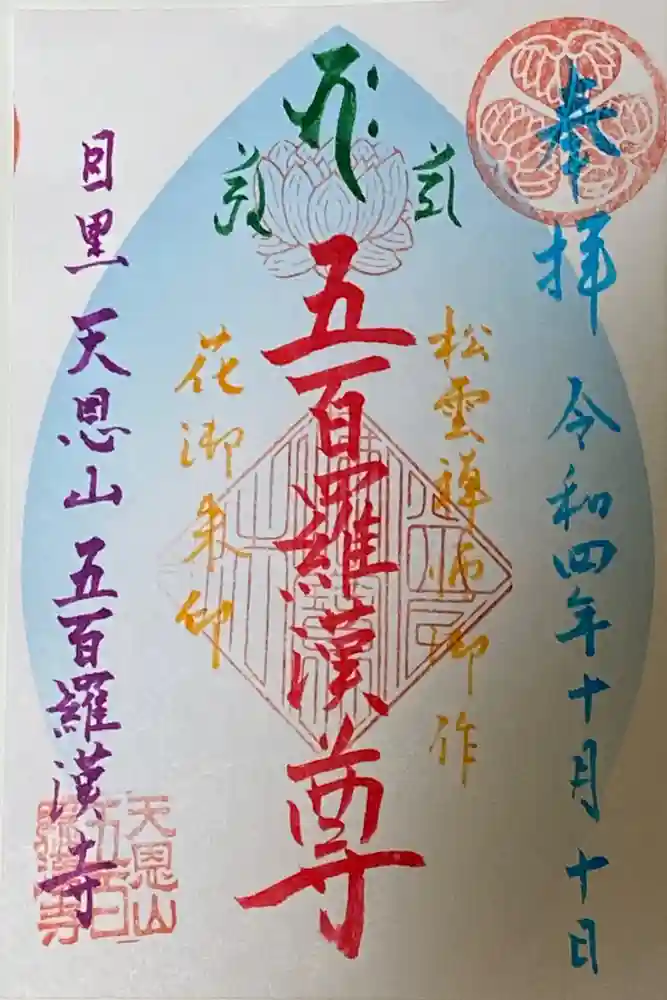 奉拝
令和四年十月十日
松雲禅師御作
五百羅漢尊
花御朱印
目黒 天恩山 五百羅漢寺
天恩山
五百
羅漢寺